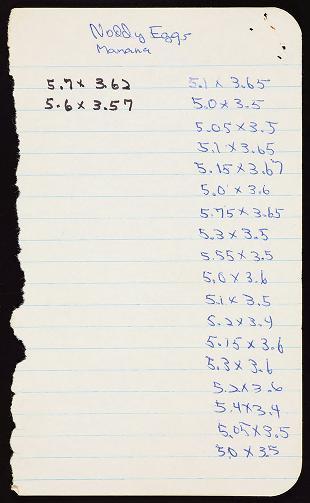 Noddy Eggs
Manana
5.7 x 3.62
5.6 x 3.57
5.1 x 3.65
5.0 x 3.5
5.05 x 3.5
5.1 x 3.65
5.15 x 3.67
5.0 x 3.6
5.75 x 3.65
5.3 x 3.5
5.55 x 3.5
5.0 x 3.6
5.1 x 3.5
5.2 x 3.4
5.15 x 3.6
5.3 x 3.6
5.2 x 3.6
5.4 x 3.4
5.05 x 3.5
5.0 x 3.5